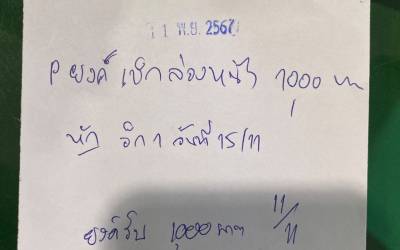 11 พ.ย. 2567
P ยงค์ เบิกล่วงหน้า 1000 บาท
หัก วิกา วันที่ 15/11
ยงค์รับ 1000 บาท 11/11